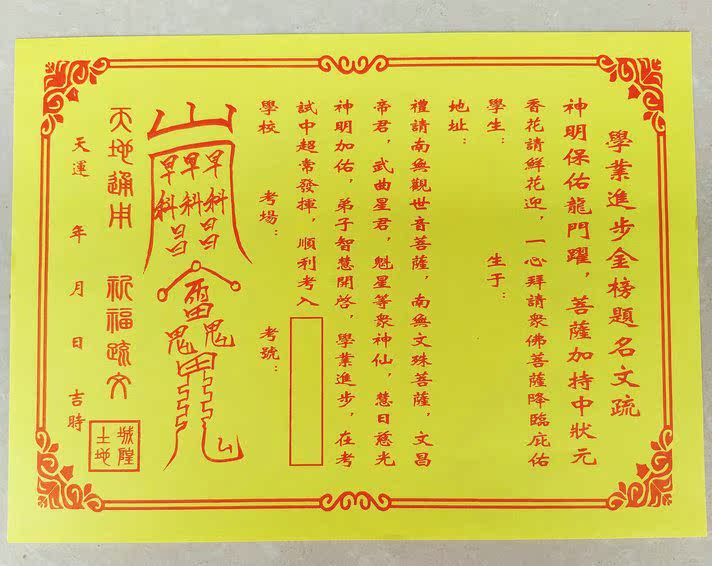 學業進步金榜題名文疏
神明保佑龍門躍，菩薩加持中狀元
香花請鮮花迎，一心拜請衆佛菩薩降臨庇佑
學生： 生于：
地址：
禮請南無觀世音菩薩，南無文珠菩薩，文昌
帝君，武曲星君，魁星等衆神仙，慧日慈光
神明加佑，弟子智慧開啓，學業進步，在考
試中超常發揮，順利考入
學校 考場： 考號：
天地通用 祈福疏文
天運 年 月 日 吉時
城隍
土地